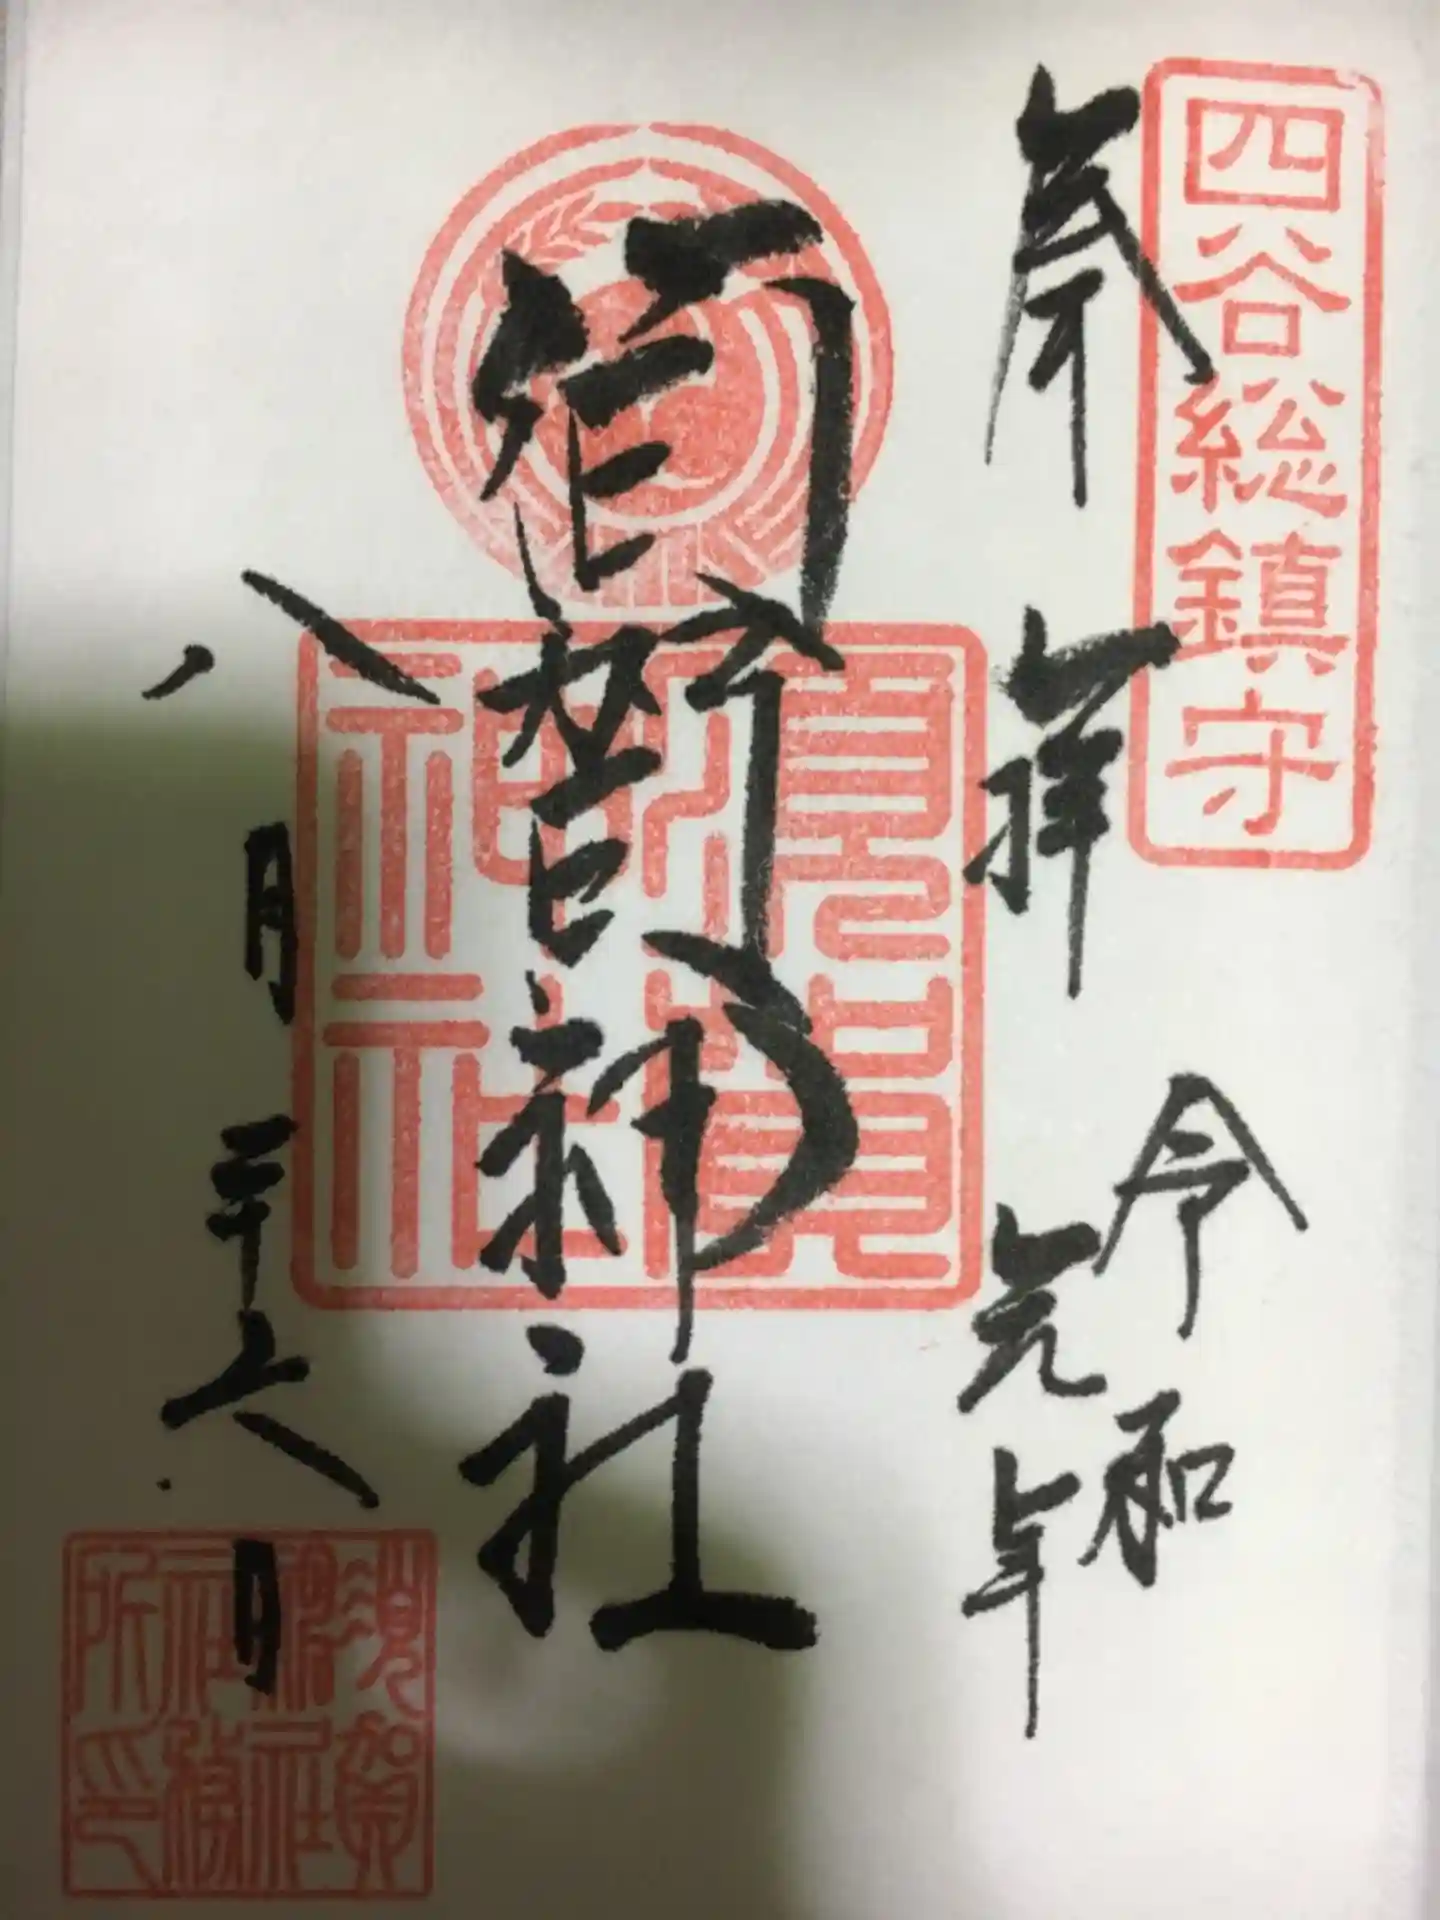 四谷総鎮守
奉拝
令和
元年
須賀神社
須賀
神社
八月二十六日
須賀
神社
社務
所印